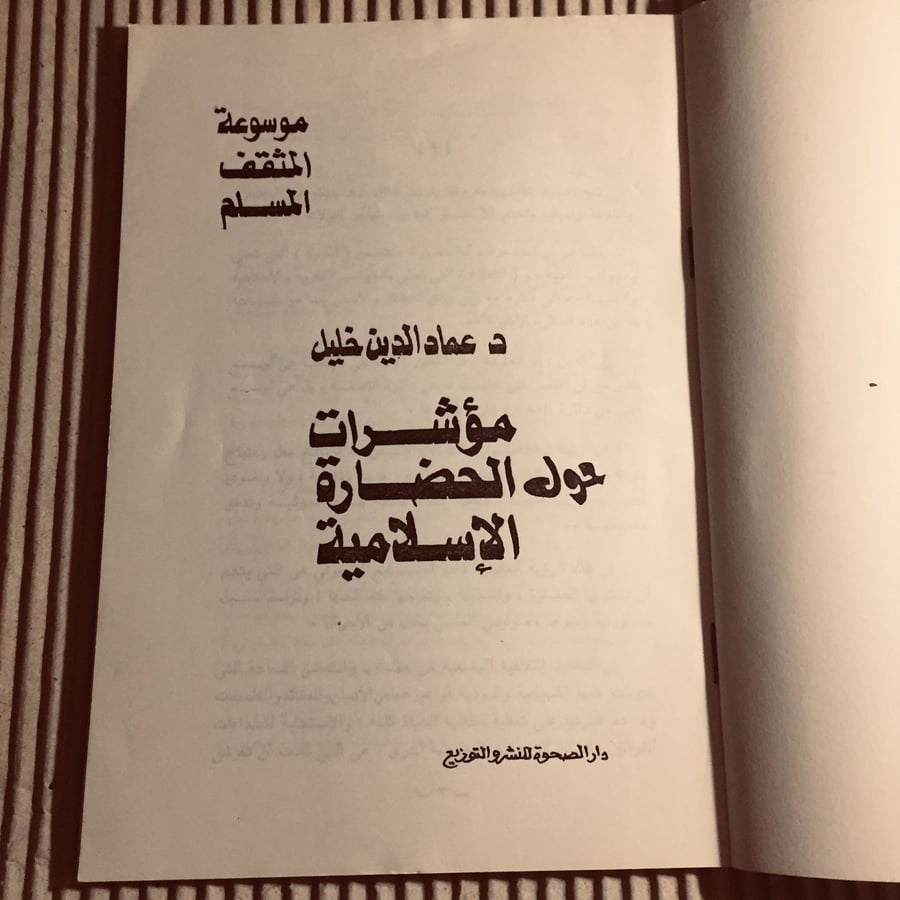 موسوعة
المثقف
المسلم
د. عماد الدين خليل
مؤشرات
حول الحضارة
الإسلامية
دار الصحوة للنشر والتوزيع